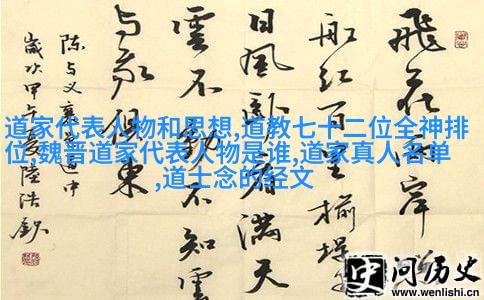 飛花兩岸
船紅百里榆堤
日風卧看滿天
雲不動不知雲
与我俱東
陈与义襄邑道中
歲次甲午夏陸浩
道家代表人物和思想,道教七十二位全神排
位,魏晋道家代表人物是谁,道家真人名单
,道士念的经文
史问历史
www.wenlishi.cn